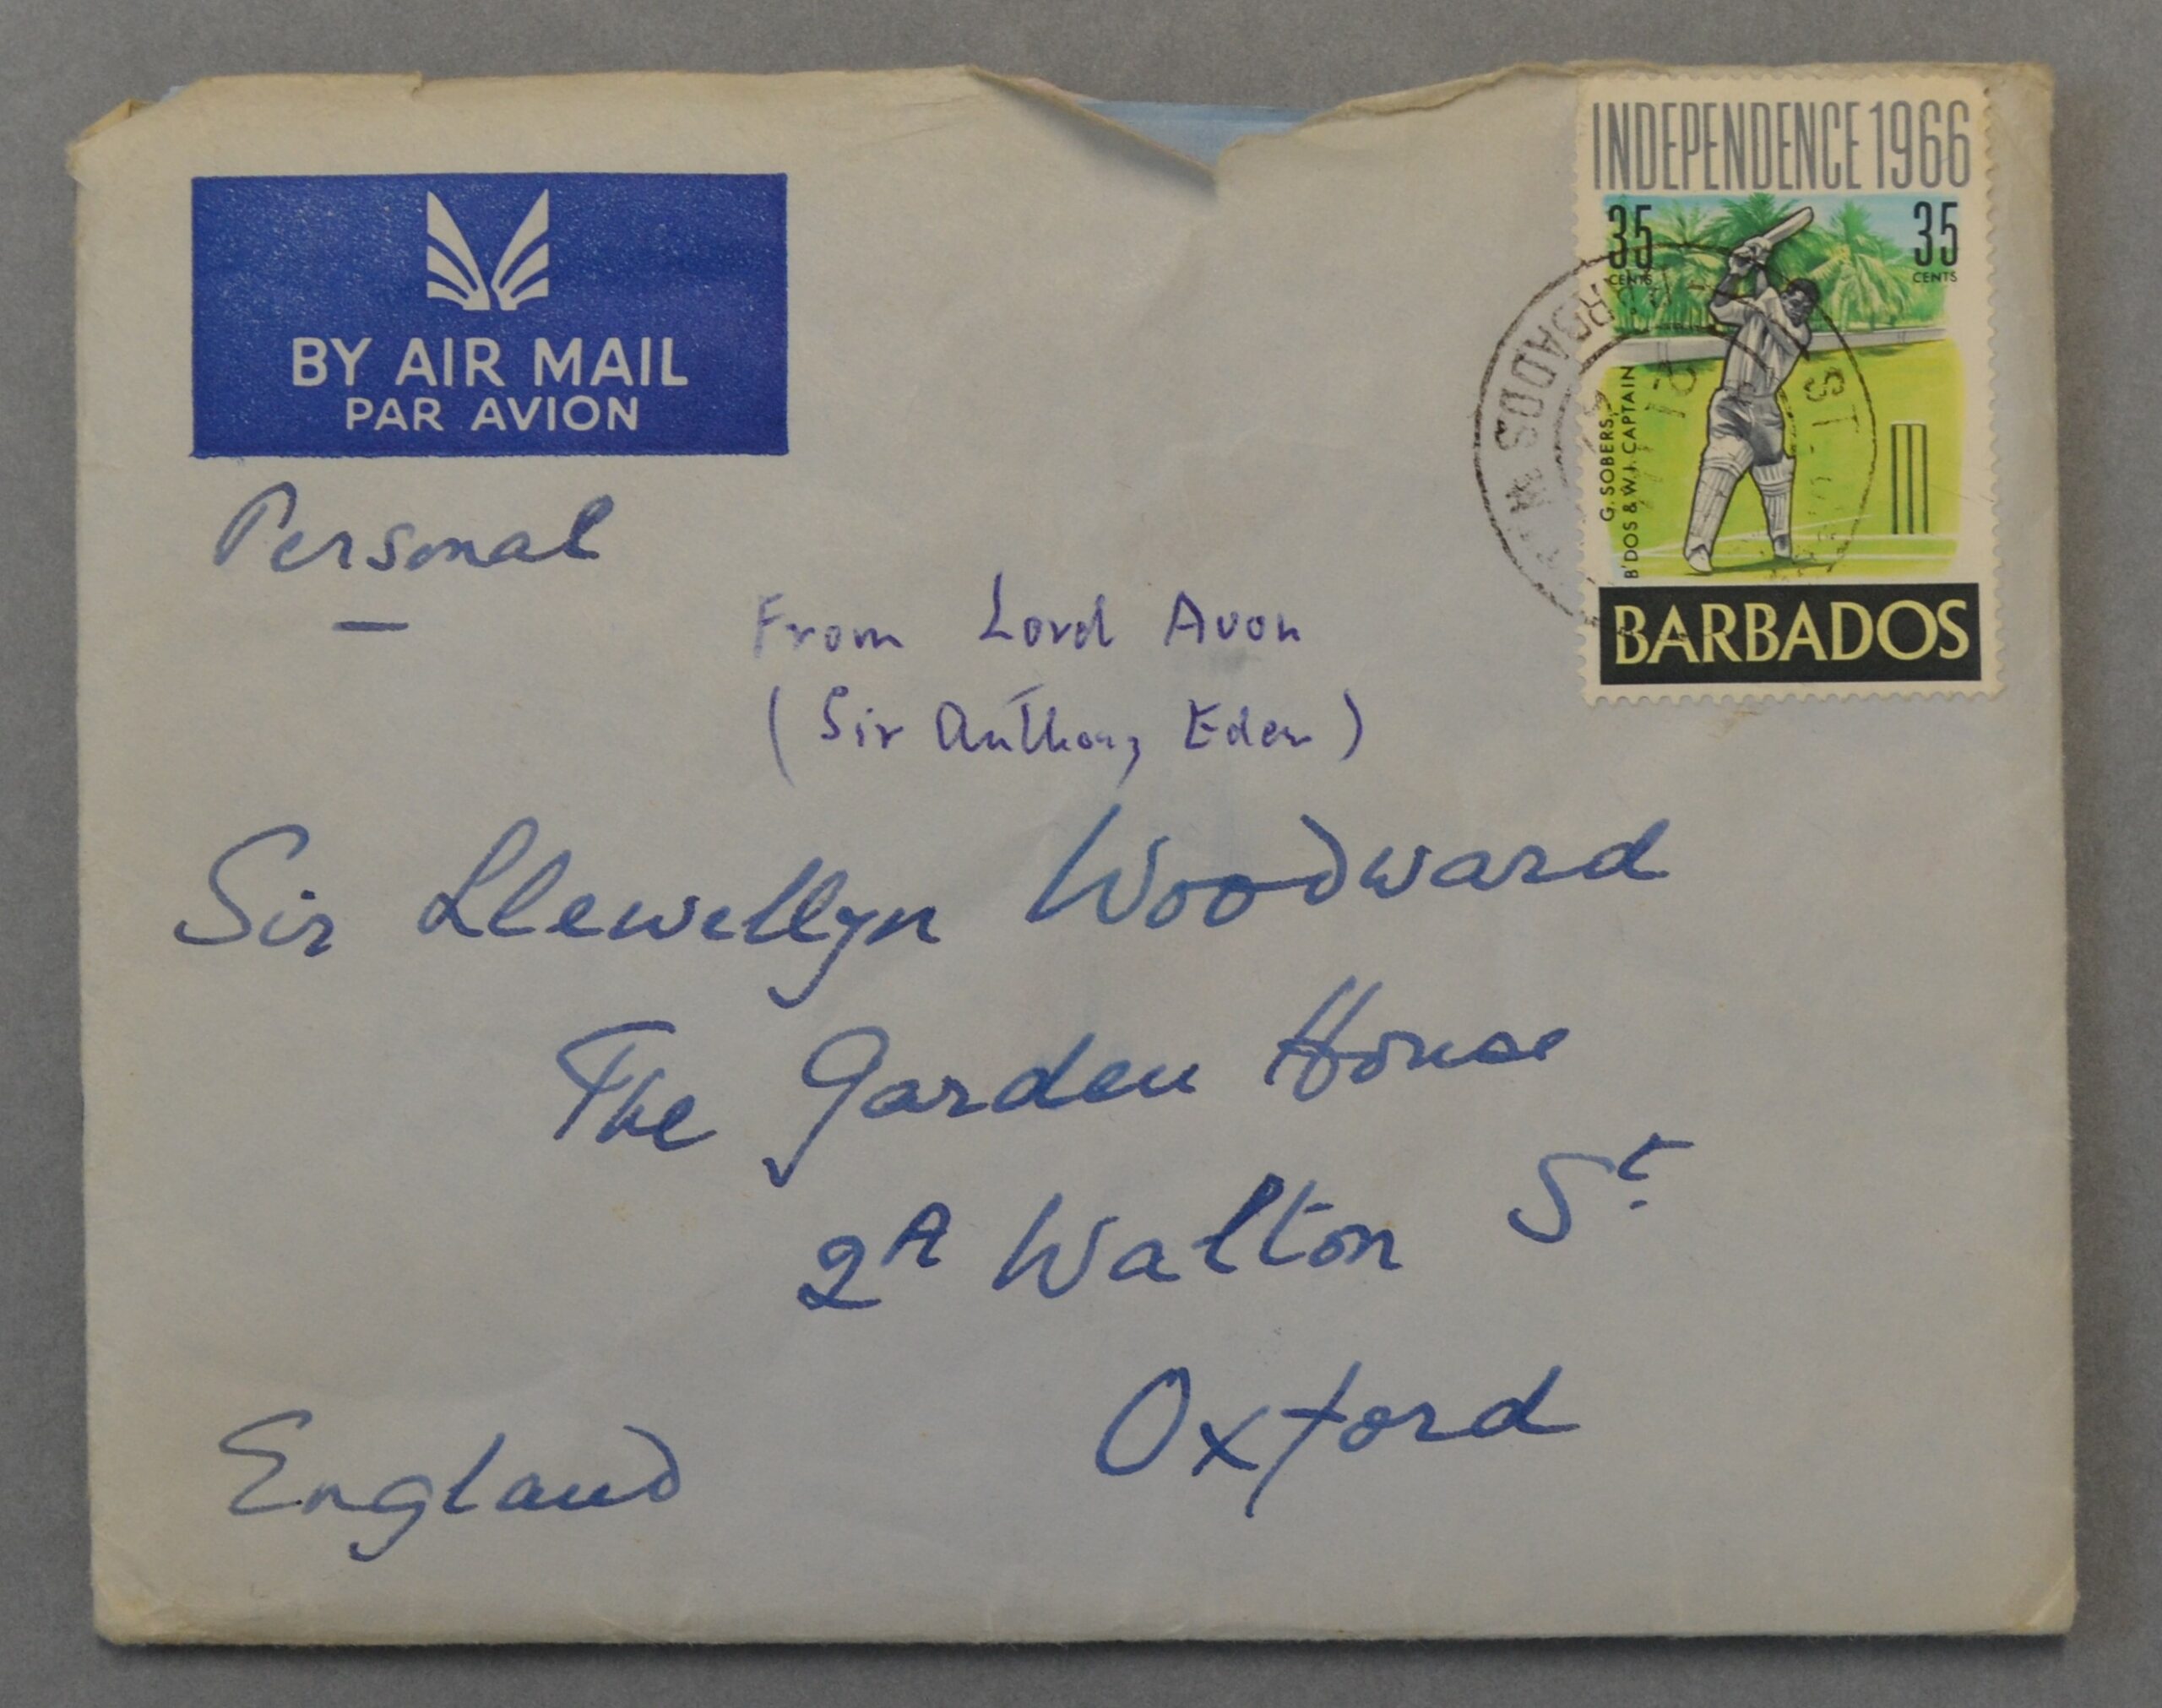 BY AIR MAIL
PAR AVION
INDEPENDENCE 1966
35 CENTS
35 CENTS
G. SOBERS,
B'DOS & W.I. CAPTAIN
BARBADOS
BARBADOS W
ST.
Personal
From Lord Avon
(Sir Anthony Eden)
Sir Llewellyn Woodward
The Garden House
2A Walton St.
Oxford
England